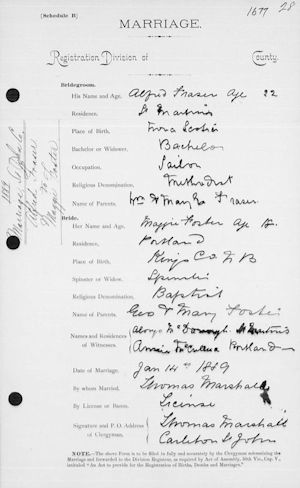 (Schedule B)
1677 28
MARRIAGE.
Registration Division of County.
Bridegroom.
His Name and Age, Alfred Fraser Age 22
Residence, St Martins
Place of Birth, Nova Scotia
Bachelor or Widower, Bachelor
Occupation, Sailor
Religious Denomination, Methodist
Name of Parents, Wm & Mary Fraser
Bride.
Her Name and Age, Maggie Foster Age
Residence, Portland
Place of Birth, Kings Co N B
Spinster or Widow, Spinster
Religious Denomination, Baptist
Name of Parents, Geo & Mary Foster
Names and Residences of Witnesses, Alonzo McDonough St Martins
Annie Portland
Date of Marriage, Jan 14th 1889
By whom Married, Thomas Marshall
By License or Banns, License
Signature and P. O. Address of Clergyman, Thomas Marshall
Carleton St John
NOTE.—The above Form is to be filled in fully and accurately by the Clergyman solemnizing the
Marriage and forwarded to the Division Registrar, as required by Act of Assembly, 50th Vic., Cap. V.,
intituled "An Act to provide for the Registration of Births, Deaths and Marriages."
1889
Marriage
Alfred Fraser
to
Maggie Foster